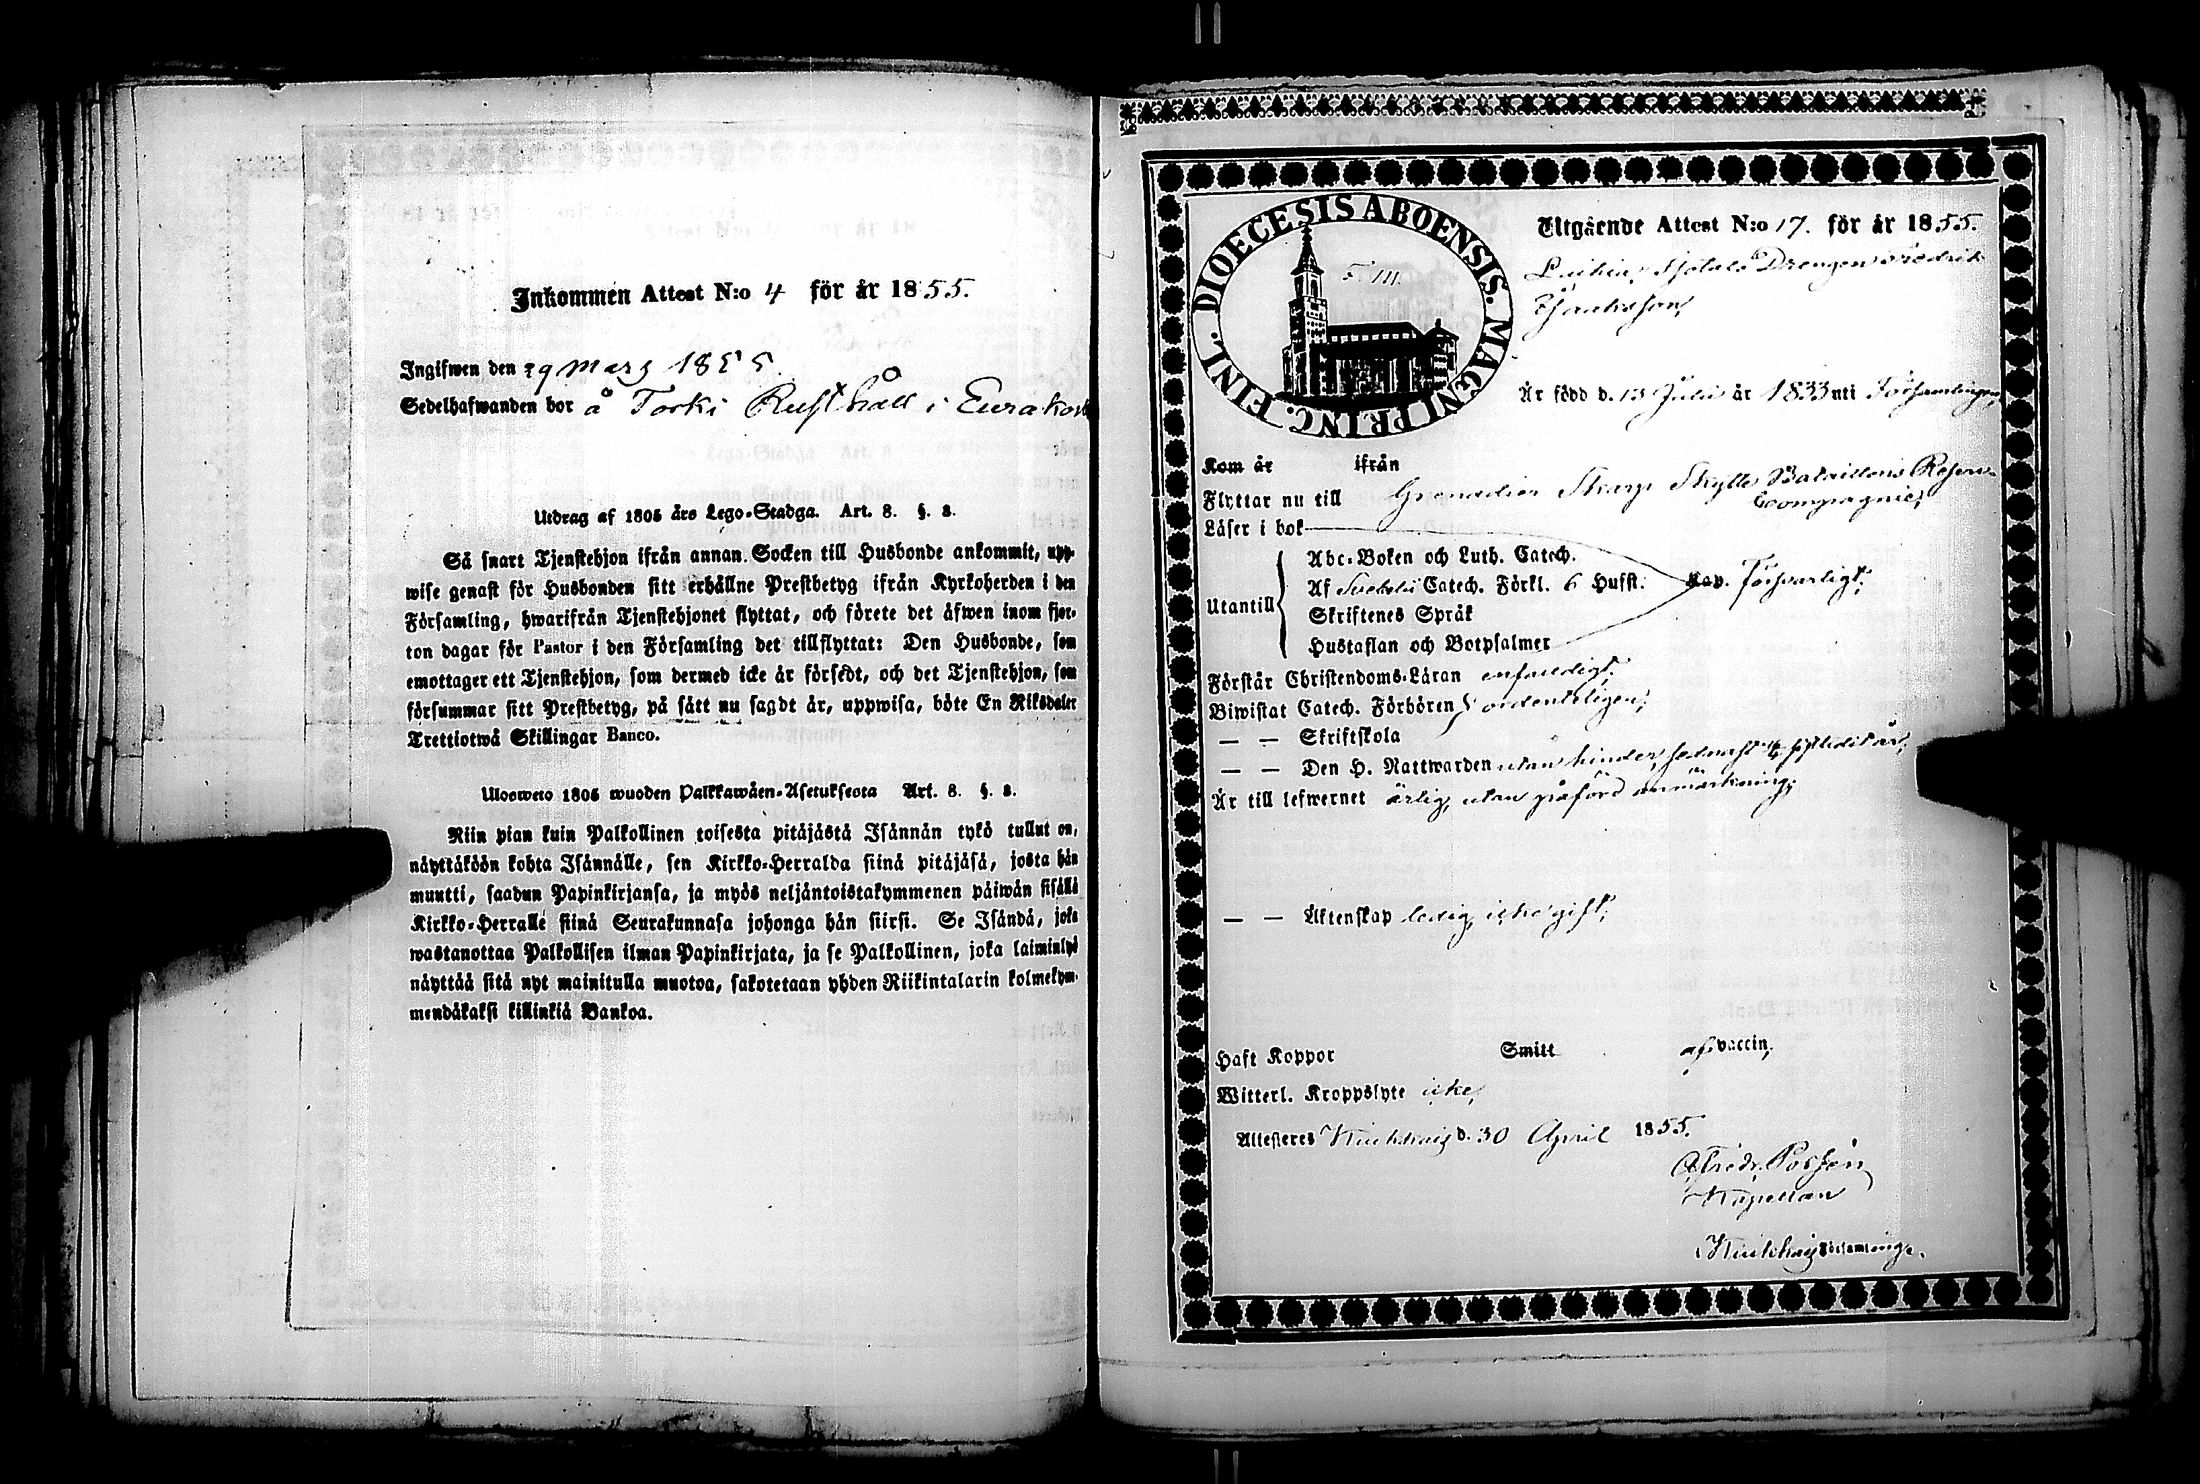 Inkommen Attest N:o 4 för år 1855.
Ingifwen den 29 Mars 1855.
Sedelhafwanden bor å Torki Rusthåll i Eurakoski
Utdrag af 1805 års Lego-Stadga. Art. 8. §. 2.
Så snart Tjenstehjon ifrån annan Socken till Husbonde ankommit, upp-
wise genast för Husbonden sitt erhållne Prestbetyg ifrån Kyrkoherden i den
Församling, hwarifrån Tjenstehjonet flyttat, och förete det äfwen inom fjor-
ton dagar för Pastor i den Församling det tillflyttat: Den Husbonde, som
emottager ett Tjenstehjon, som dermed icke är försedt, och det Tjenstehjon, som
försummar sitt Prestbetyg, på sätt nu sagdt är, uppwisa, böte En Riksdaler
Trettiotwå Skillingar Banco.
Ulosweto 1805 wuoden Palkkawäen-Asetuksesta Art. 8. §. 2.
Niin pian kuin Palkollinen toisesta pitäjästä Isännän tykö tullut on,
näyttäköön kohta Isännälle, sen Kirkko-Herralda siinä pitäjäsä, josta hän
muutti, saadun Papinkirjansa, ja myös neljäntoistakymmenen päiwän sisällä
Kirkko-Herralle siinä Seurakunnasa johonga hän siirsi. Se Isändä, joka
wastanottaa Palkollisen ilman Papinkirjata, ja se Palkollinen, joka laiminlyö
näyttää sitä nyt mainitulla muotoa, sakotetaan yhden Riikintalarin kolmekym-
mendäkaksi killinkiä Bankoa.
DIOECESIS ABOENSIS. MAGNI PRINC. FINL.
F. 111.
Utgående Attest N:o 17. för år 1855.
Drengen Fredrik
Är född d. 13 Julii år 1833 uti Församlingen,
Kom år ifrån
Flyttar nu till Grenadier Skarp Skytte Bataillons Reserv-
Compagnie,
Läser i bok
Abc-Boken och Luth. Catech.
Utantill Af Svebelii Catech. Förkl. 6 Hufst. Kap. Försvarligt;
Skriftenes Språk
Hustaflan och Botpsalmer
Förstår Christendoms-Läran enfaldigt.
Biwistat Catech. Förhören ordenteligen;
— — Skriftskola
— — Den H. Nattwarden utan hinder, sednast
Är till lefwernet ärlig, utan påförd anmärkning;
— — Äktenskap ledig, icke gift;
Haft Koppor Smitt af vaccin,
Witterl. Kroppslyte icke,
Attesteres Kiukkais d. 30 April 1855.
Fredr. Possén
Kapellan
i Kiukkais Församlinge.